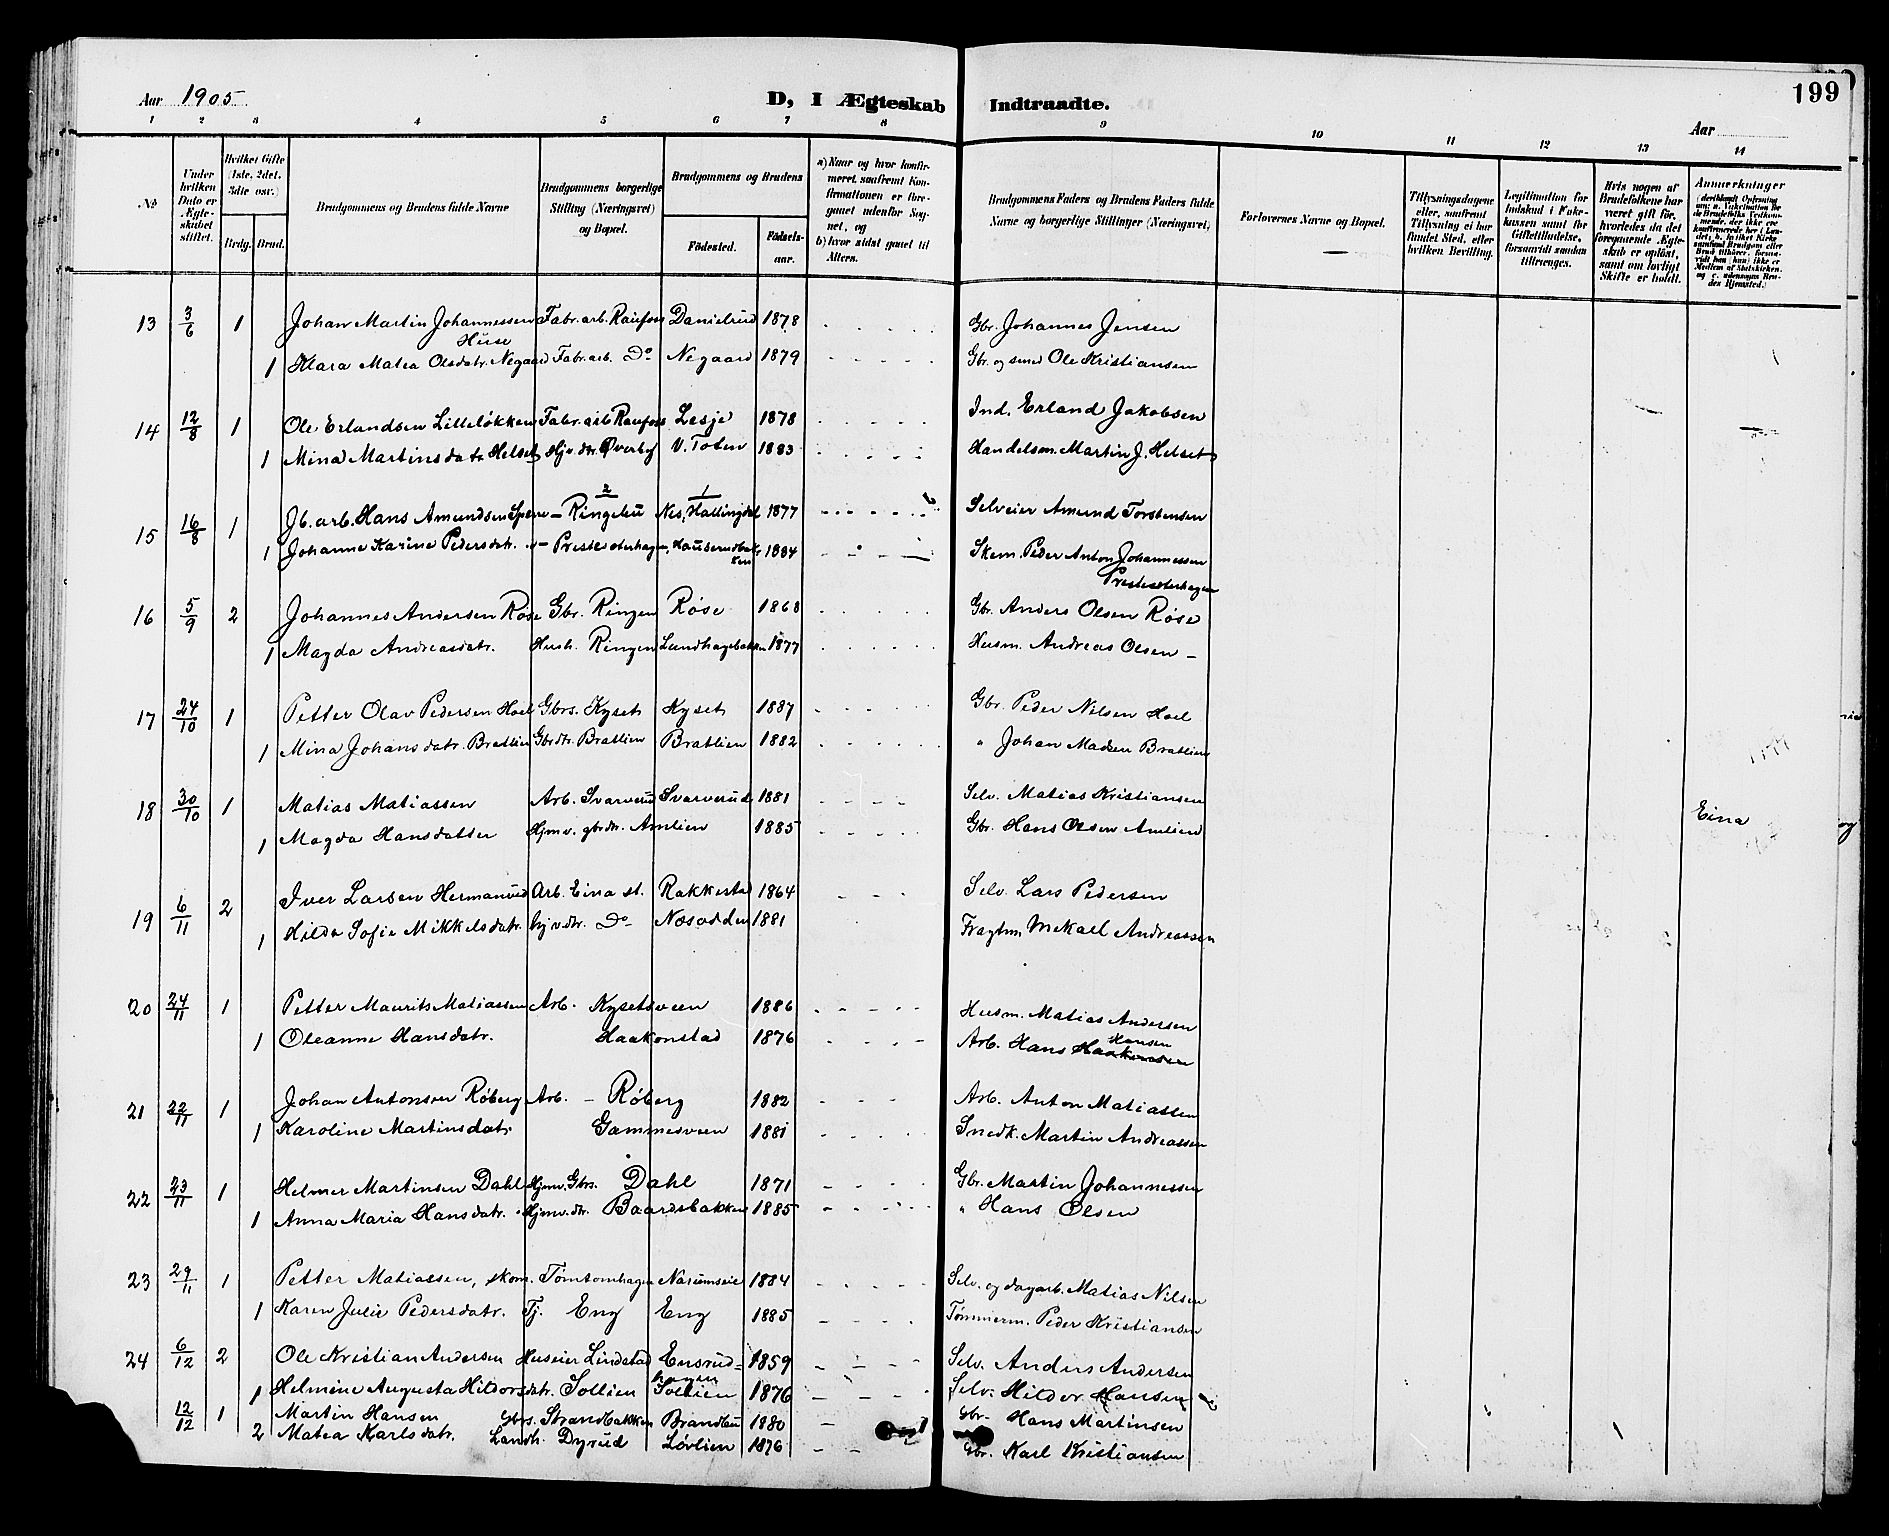 Aar 1905. D, I Ægteskab Indtraadte. 199
Aar
1 2 3 4 5 6 7 8 9 10 11 12 13 14
No
Under hvilken Dato er Ægteskabet stiftet.
Hvilket Gifte (1ste, 2det, 3die osv.)
Brdg. Brud.
Brudgommens og Brudens fulde Navne
Brudgommens borgerlige Stilling (Næringsvei) og Bopæl.
Brudgommens og Brudens
Födested. Födsels-aar.
a) Naar og hvor konfirmeret, samfremt Konfirmationen er foregaaet udenfor Sognet, og
b) hvor sidst gaaet til Alters.
Brudgommens Faders og Brudens Faders fulde Navne og borgerlige Stillinger (Næringsvei)
Forlovernes Navne og Bopæl.
Tillysningsdagene eller, samfremt Tillysning ei har fundet Sted, efter hvilken Bevilling.
Legitimation for Indskud i Enkekassen samt for Giftetilladelse, forsaavidt saadan tiltrænges.
Hvis nogen af Brudefolkene har været gift för, hvorledes da det foregaaende Ægteskab er oplöst, samt om lovligt Skifte er holdt.
Anmærkninger
13 3/6 1 Johan Martin Johannessen Huse Fabr. arb. Raufoss Danielrud 1878 Gbr. Johannes Jensen
1 Klara Matea Olsdatr. Negaard Fabr. arb. Do Negaard 1879 Gbr. og smed Ole Kristiansen
14 12/8 1 Ole Erlandsen Lilleløkken Fabr. arb Raufoss Lesje 1878 Ind. Erland Jakobsen
1 Mina Martinsdatr. Helset Hjv. dtr. Øverby V. Toten 1883 Handelsm. Martin J. Helset
15 16/8 1 Jb. arb. Hans Amundsen - Ringebu Nes, Hallingdal 1877 Selveier Amund Torstensen
1 Johanne Karine Pedersdatr. - Presteseterhagen, 1884 Skom. Peder Anton Johannessen Presteseterhagen
16 5/9 2 Johannes Andersen Røse Gbr. Ringen Røse 1868 Gbr. Anders Olsen Røse
1 Magda Andreasdatr. Hush. Ringen Lundhagebakken 1877 Husm. Andreas Olsen -
17 24/10 1 Petter Olav Pedersen Hoel Gbrs. Kyset Kyset 1887 Gbr. Peder Nilsen Hoel
1 Mina Johansdatr. Bratlien Gbrdtr. Bratlien Bratlien 1882 " Johan Madsen Bratlien
18 30/10 1 Matias Matiassen Arb. Svarverud Svarverud 1881 Selv. Matias Kristiansen
1 Magda Hansdatter Hjmv. gbrdtr. Amlien 1885 Gbr. Hans Olsen Amlien Eina
19 6/11 2 Iver Larsen Hermanrud Arb. Eina st. Rakkestad 1864 Selv. Lars Pedersen
1 Hilda Sofie Mikkelsdatr. hjv. dtr. Do Nesodden 1881 Fragtm. Mikael Andreassen
20 24/11 1 Petter Maurits Matiassen Arb. Kysetsveen 1886 Husm. Matias Andersen
1 Oleanne Hansdatr. Haakonstad 1876 Arb. Hans Haakensen Hansen
21 22/11 1 Johan Antonsen Røberg Arb. - Røberg 1882 Arb. Anton Matiassen
1 Karoline Martinsdatr. Gammesveen 1881 Snedk. Martin Andreassen
22 23/11 1 Helmer Martinsen Dahl Hjmv. Gbrs. Dahl 1871 Gbr. Martin Johannessen
1 Anna Maria Hansdatr. Hjmv. dtr. Baardsbakken 1885 " Hans Olsen
23 29/11 1 Petter Matiassen, skom. Tømtomhagen Narumseie 1884 Selv. og dagarb. Matias Nilsen
1 Karen Julie Pedersdatr. Tj. Eng Eng 1885 Tømmerm. Peder Kristiansen
24 6/12 2 Ole Kristian Andersen Huseier Lindstad Ensrudhagen 1859 Selv. Anders Andersen
1 Helmine Augusta Hildorsdatr. Sollien Sollien 1876 Selv. Hildor Hansen
12/12 1 Martin Hansen Gbrs. Strandbakken Brandbu 1880 Gbr. Hans Martinsen
2 Matea Karlsdatr. Landh. Dyrud Løvlien 1876 Gbr. Karl Kristiansen